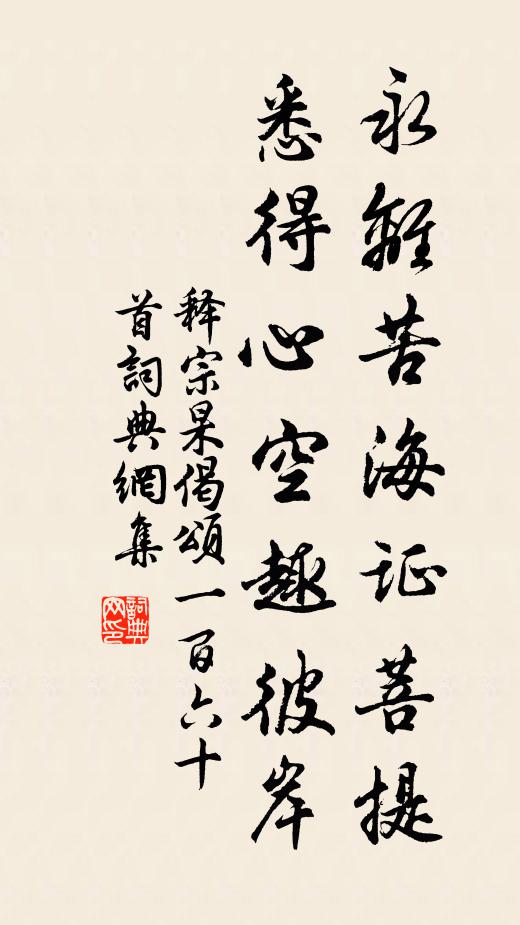 永離苦海证菩提
悉得心空趣彼岸
释宗杲偈頌一百六十
首詞典網集
詞典
网印